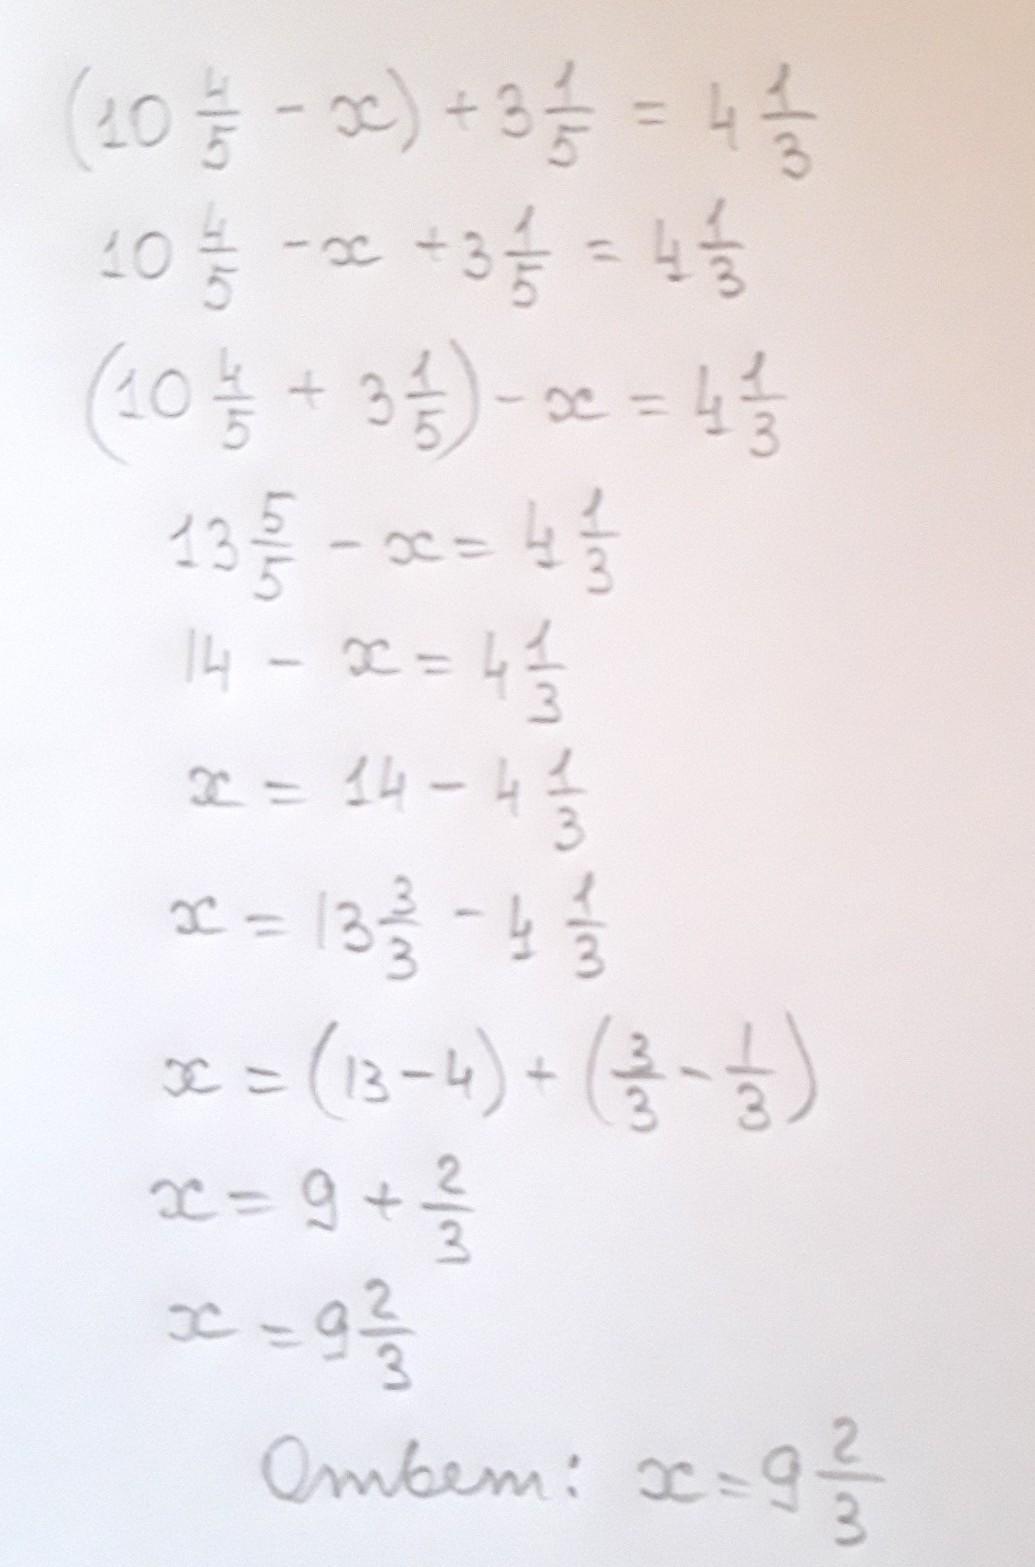 (10 4/5 - x) + 3 1/5 = 4 1/3
10 4/5 - x + 3 1/5 = 4 1/3
(10 4/5 + 3 1/5) - x = 4 1/3
13 5/5 - x = 4 1/3
14 - x = 4 1/3
x = 14 - 4 1/3
x = 13 3/3 - 4 1/3
x = (13 - 4) + (3/3 - 1/3)
x = 9 + 2/3
x = 9 2/3
Ответ: x = 9 2/3